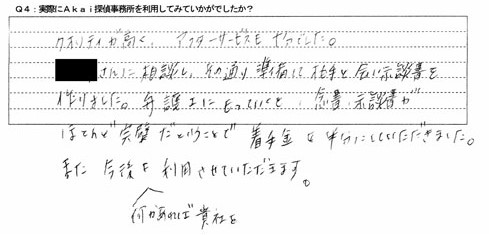 Q4：実際にＡｋａｉ探偵事務所を利用してみていかがでしたか？
クオリティが高く、アフターサービスも十分でした。
さんに相談し、その通り準備して相手と会い示談書を
作りました。弁護士にもっていくと、念書、示談書が
ほとんど完璧だということで着手金は半分にしていただきました。
また今後も利用させていただきます。
何かあれば貴社を